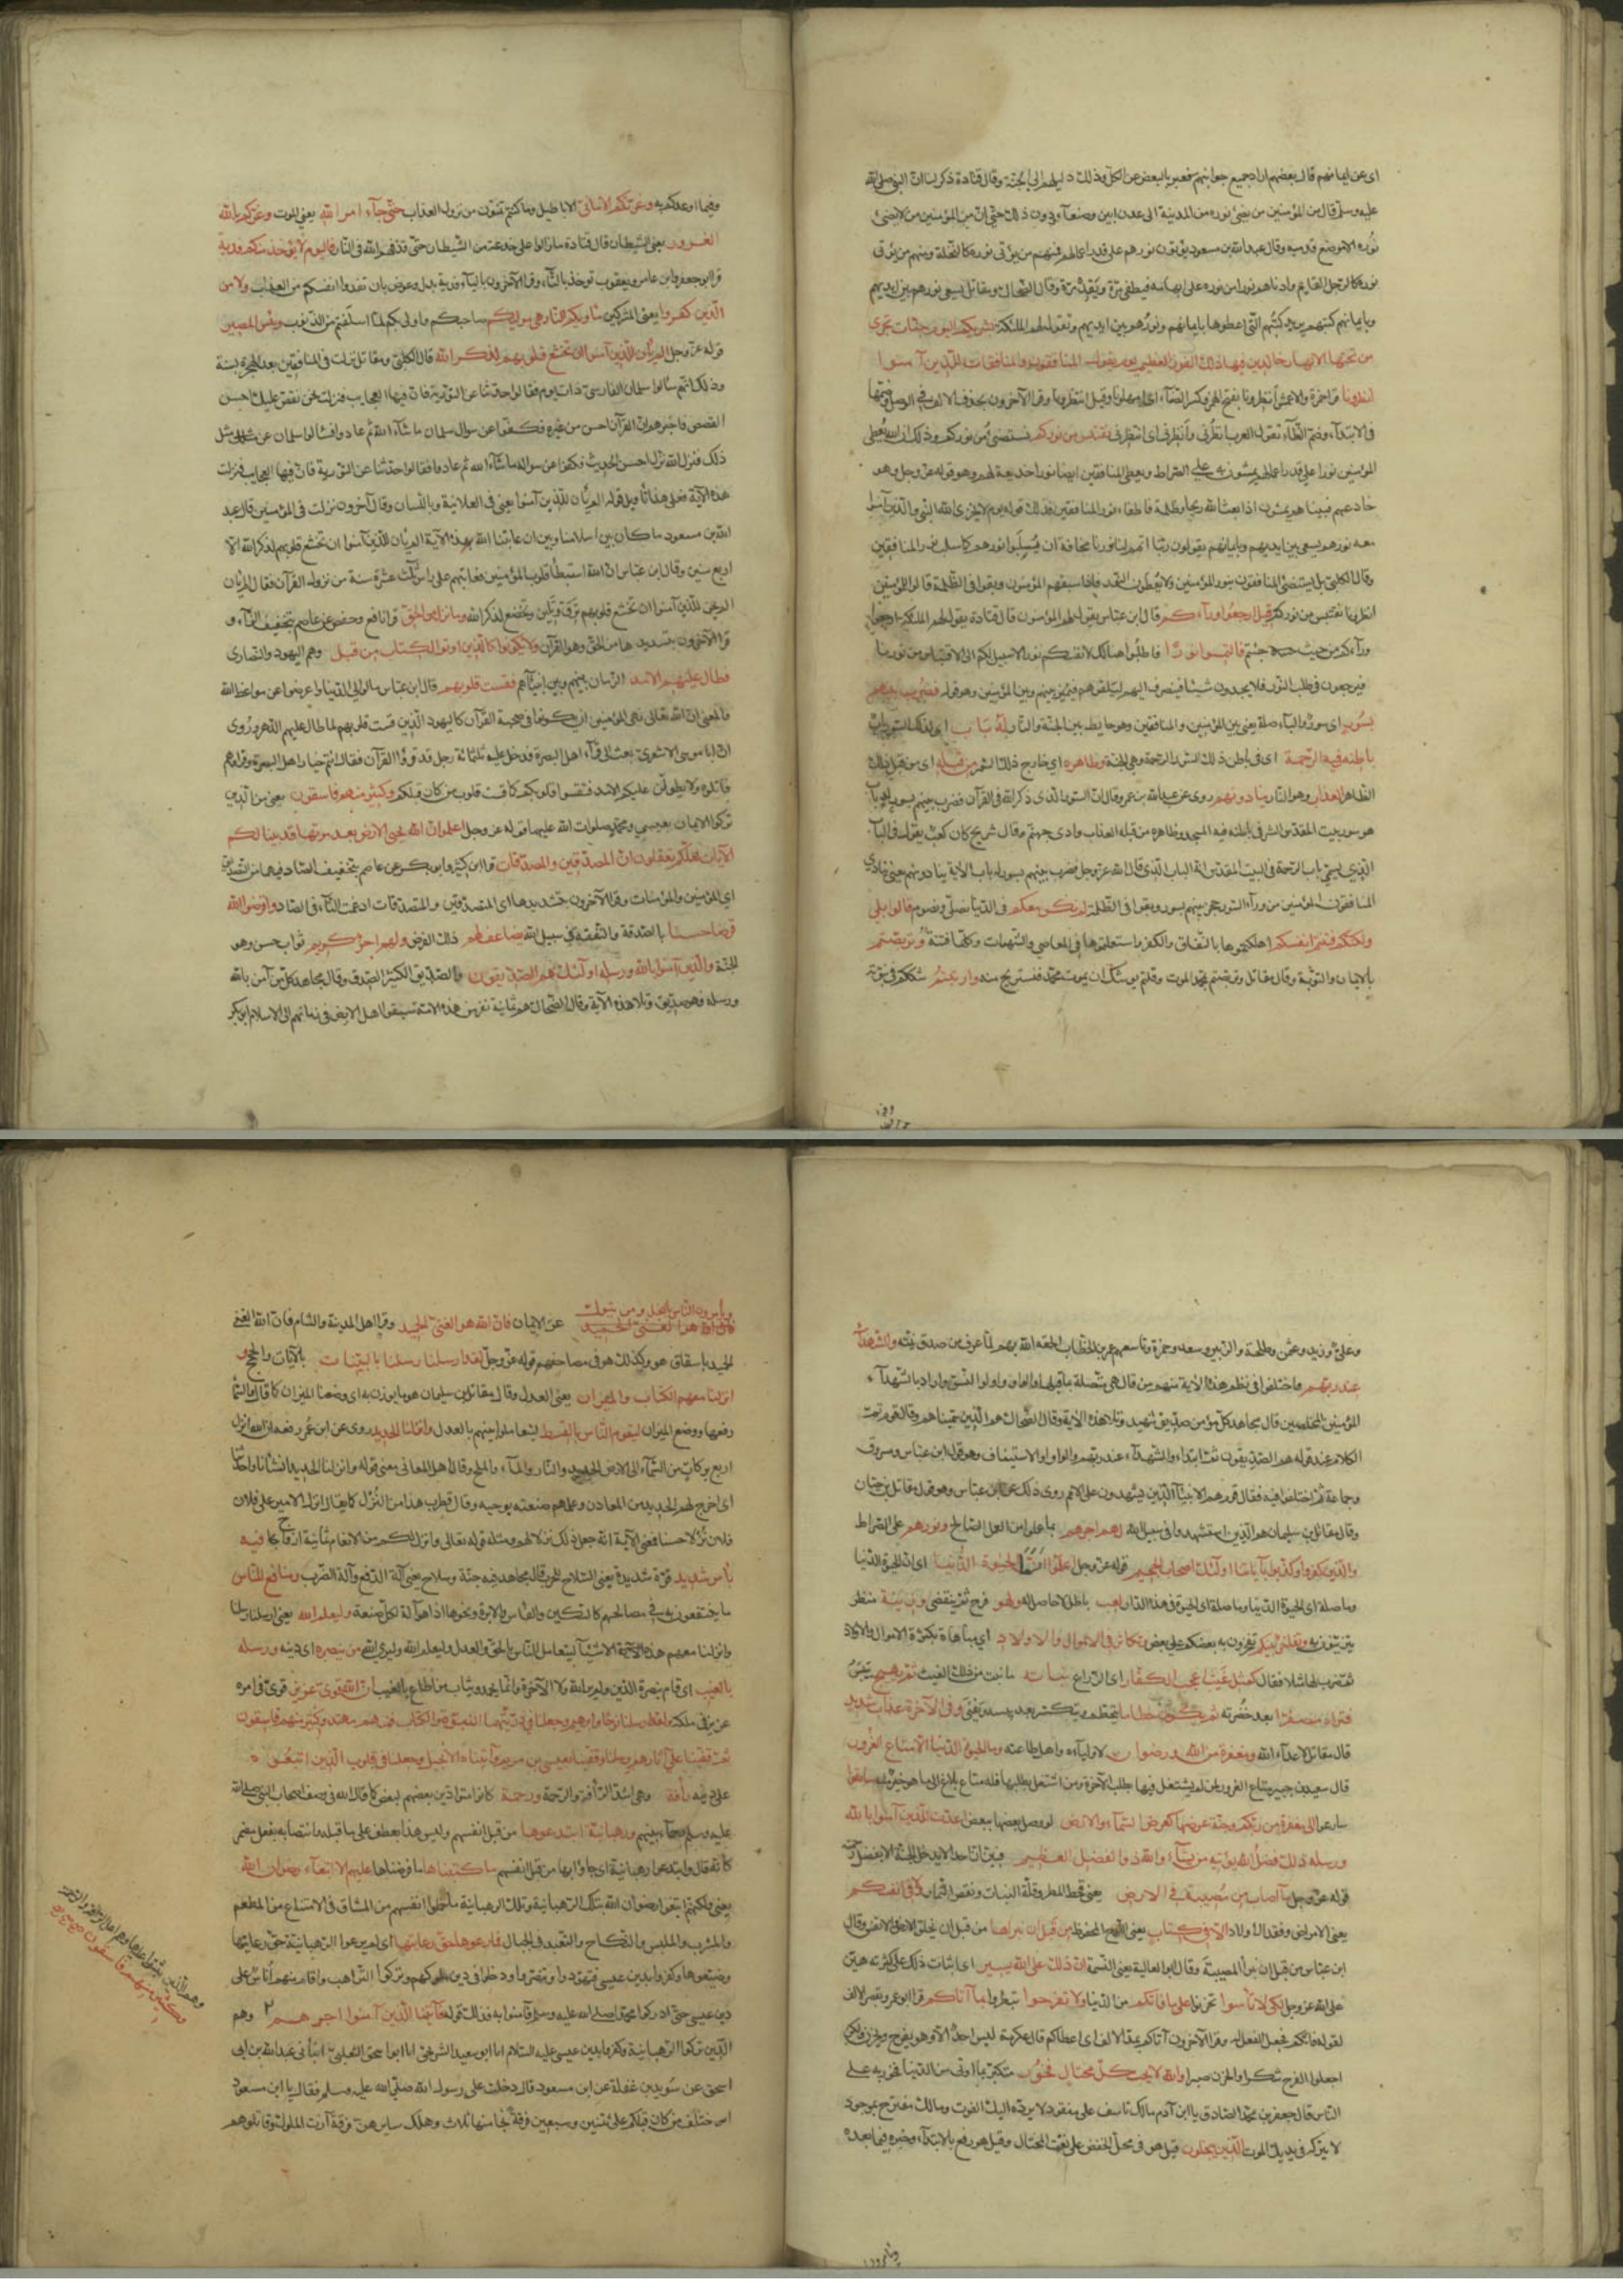 اى عن ايمانهم قال بعضهم اراد جميع جوانبهم فعبر بالبعض عن الكل وذلك دليلهم الى الجنة وقال قتادة ذكر لنا ان النبي صلى الله
عليه وسلم قال من المؤمنين من يضئ نوره من المدينة الى عدن ابين وصنعاء ودون ذلك حتى ان من المؤمنين من لا يضئ
نوره الا موضع قدميه وقال عبدالله بن مسعود يؤتون نورهم على قدر اعمالهم فمنهم من يؤتى نوره كالنخلة ومنهم من يؤتى
نوره كالرجل القايم وادناهم نورا من نوره على ابهامه فيطفى مرة ويقد مرة وقال الضحاك ومقاتل يسعى نورهم بين ايديهم
وبايمانهم كتبهم يريد كتبهم التى اعطوها بايمانهم ونورهم بين ايديهم وتقول لهم الملئكة بشريكم اليوم جنات تجرى
من تحتها الانهار خالدين فيها ذلك الفوز العظيم يوم يقول المنافقون والمنافقات للذين آمنوا
انظرونا قرا حمزة والاعمش انظرونا بفتح الهمزة وكسر الظاء اى امهلونا وقيل انتظرونا وقرا الآخرون بحذف الالف فى الوصل وضمها
فى الابتداء وضم الظاء تقول العرب انظرنى وانظرنى اى انتظرنى نقتبس من نوركم نستضئ من نوركم وذلك ان الله يعطى
المؤمنين نورا على قدر اعمالهم يمشون به على الصراط ويعطى المنافقين ايضا نورا خديعة لهم وهو قوله عز وجل وهو
خادعهم فبينا هم يمشون اذا بعث الله ريحا وظلمة فاطفاء نور المنافقين فذلك قوله يوم لا يخزى الله النبى والذين آمنوا
معه نورهم يسعى بين ايديهم وبايمانهم يقولون ربنا اتمم لنا نورنا مخافة ان يسلبوا نورهم كما سلب نور المنافقين
وقال الكلبى بل يستضئ المنافقون بنور المؤمنين ولا يعطون النور فاذا سبقهم المؤمنون وبقوا فى الظلمة قالوا للمؤمنين
انظرونا نقتبس من نوركم قيل ارجعوا وراءكم قال ابن عباس يقول لهم المؤمنون وقال قتادة يقول لهم الملئكة ارجعوا
وراءكم من حيث جئتم فالتمسوا نورا فاطلبوا هناك لانفسكم نورا لا سبيل لكم الى الاقتباس من نورنا
فيرجعون فى طلب النور فلا يجدون شيئا فينصرف اليهم ليلقوهم فيميز بينهم وبين المؤمنين وهو قوله فضرب بينهم
بسور اى سور والباء صلة يعنى بين المؤمنين والمنافقين وهو حايط بين الجنة والنار له باب اى لذلك السور باب
باطنه فيه الرحمة اى فى باطن ذلك السور الرحمة وهى الجنة وظاهره اى خارج ذلك السور من قبله اى من قبل ذلك
الظاهر العذاب وهو النار ينادونهم روى عن عبدالله بن عمر وقال ان السور الذى ذكر الله فى القرآن فضرب بينهم بسور له باب
هو سور بيت المقدس الشرقى باطنه فيه المسجد وظاهره من قبله العذاب وادى جهنم وقال شريح كان كعب يقول فى الباب
الذى يسمى باب الرحمة فى البيت المقدس انه الباب الذى قال الله عز وجل فضرب بينهم بسور له باب الآية ينادونهم يعنى ينادى
المنافقون المؤمنين من وراء السور حجز بينهم بسور وبقوا فى الظلمة الم نكن معكم فى الدنيا نصلى ونصوم قالوا بلى
ولكنكم فتنتم انفسكم اهلكتموها بالنفاق والكفر واستعملتموها فى المعاصى والشهوات وكلها فتنة وتربصتم
بالايمان والتوبة وقال مقاتل وتربصتم بمحمد الموت وقلتم يوشك ان يموت محمد فنستريح منه وارتبتم شككتم فى نبوته
وفيما اوعدكم به وغرتكم الامانى الاباطيل وما كنتم تمنون من نزول العذاب حتى جاء امر الله يعنى الموت وغركم بالله
الغرور يعنى الشيطان قال قتادة ما زالوا على خدعة من الشيطان حتى قذفهم الله فى النار فاليوم لا يؤخذ منكم فدية
قرا ابو جعفر وابن عامر ويعقوب تؤخذ بالتاء وقرا الآخرون بالياء فدية بدل وعوض بان تفدوا انفسكم من العذاب ولا من
الذين كفروا يعنى المشركين ماويكم النار هى موليكم صاحبكم واولى بكم لما اسلفتم من الذنوب وبئس المصير
قوله عز وجل الم يأن للذين آمنوا ان تخشع قلوبهم لذكر الله قال الكلبى ومقاتل نزلت فى المنافقين بعد الهجرة بسنة
وذلك انهم سألوا سلمان الفارسى ذات يوم فقالوا حدثنا عن التورية فان فيها العجايب فنزلت نحن نقص عليك احسن
القصص فاخبرهم ان القرآن احسن من غيره فكفوا عن سوال سلمان ما شاء الله ثم عادوا فسألوا سلمان عن مثل
ذلك فنزل الله نزل احسن الحديث فكفوا عن سواله ما شاء الله ثم عادوا فقالوا حدثنا عن التورية فان فيها العجايب فنزلت
هذه الآية فعلى هذا تأويل قوله الم يأن للذين آمنوا يعنى فى العلانية وباللسان وقال آخرون نزلت فى المؤمنين قال عبد
الله بن مسعود ما كان بين اسلامنا وبين ان عاتبنا الله بهذه الآية الم يأن للذين آمنوا ان تخشع قلوبهم لذكر الله الا
اربع سنين وقال ابن عباس ان الله استبطأ قلوب المؤمنين فعاتبهم على راس ثلث عشرة سنة من نزول القرآن فقال الم يأن
الم يحن للذين آمنوا ان تخشع قلوبهم ترق وتلين وتخضع لذكر الله وما نزل من الحق قرا نافع وحفص عن عاصم بتخفيف الزاء و
قرا الآخرون بتشديدها من الحق وهو القرآن ولا يكونوا كالذين اوتوا الكتاب من قبل وهم اليهود والنصارى
فطال عليهم الامد الزمان بينهم وبين انبيائهم فقست قلوبهم قال ابن عباس مالوا الى الدنيا واعرضوا عن مواعظ الله
والمعنى ان الله تعالى نهى المؤمنين ان يكونوا فى صحبة القرآن كاليهود الذين قست قلوبهم لما طال عليهم الدهر وروى
ان ابا موسى الاشعرى بعث الى قراء اهل البصرة فدخل عليه ثلثمائة رجل قد قرؤا القرآن فقال انتم خيار اهل البصرة وقراؤهم
فاتلوه ولا يطولن عليكم الامد فتقسوا قلوبكم كما قست قلوب من كان قبلكم وكثير منهم فاسقون يعنى من الذين
تركوا الايمان بعيسى ومحمد صلوات الله عليهما قوله عز وجل اعلموا ان الله يحيى الارض بعد موتها قد بينا لكم
الآيات لعلكم تعقلون ان المصدقين والمصدقات قرا ابن كثير وابو بكر عن عاصم بتخفيف الصاد فيهما من التصديق
اى المؤمنين والمؤمنات وقرا الآخرون بتشديدها اى المتصدقين والمتصدقات ادغمت التاء فى الصاد واقرضوا الله
قرضا حسنا بالصدقة والنفقة فى سبيل الله يضاعف لهم ذلك القرض ولهم اجر كريم ثواب حسن وهو
الجنة والذين آمنوا بالله ورسله اولئك هم الصديقون والصديق الكثير الصدق وقال مجاهد كل من آمن بالله
ورسله وهو صديق وتلا هذه الآية وقال الضحاك هم ثمانية نفر من هذه الامة سبقوا اهل الارض فى زمانهم الى الاسلام ابو بكر
وعلى وزيد وعثمن وطلحة والزبير وسعد وحمزة وتاسعهم عمر بن الخطاب الحقه الله بهم لما عرف من صدق نيته والشهداء
عند ربهم فاختلفوا فى نظم هذه الآية منهم من قال هى متصلة بما قبلها والواو واو النسق واراد بالشهداء
المؤمنين المخلصين قال مجاهد كل مؤمن صديق شهيد وتلا هذه الآية وقال الضحاك هم الذين سميناهم وقال قوم تمت
الكلام عند قوله هم الصديقون ثم ابتداء والشهداء عند ربهم والواو واو الاستيناف وهو قول ابن عباس ومسروق
وجماعة ثم اختلفوا فيه فقال قوم هم الانبياء الذين يشهدون على الامم روى ذلك عن ابن عباس وهو قول مقاتل بن حيان
وقال مقاتل بن سليمان هم الذين استشهدوا فى سبيل الله لهم اجرهم بما عملوا من العمل الصالح ونورهم على الصراط
والذين كفروا وكذبوا بآياتنا اولئك اصحاب الجحيم قوله عز وجل اعلموا انما الحيوة الدنيا اى ان الحيوة الدنيا
وما صلة اى الحيوة الدنيا وما صلة اى الحيوة فى هذه الدار لعب باطل لا حاصل له ولهو فرح ثم ينقضى وزينة منظر
يتزينون به وتفاخر بينكم يفخرون به بعضكم على بعض وتكاثر فى الاموال والاولاد اى مباهاة بكثرة الاموال والاولاد
ثم ضرب لها مثلا فقال كمثل غيث اعجب الكفار اى الزراع نباته ما نبت من ذلك الغيث ثم يهيج ييبس
فتراه مصفرا بعد خضرته ثم يكون حطاما يتحطم ويتكسر بعد يبسه ويفنى وفى الآخرة عذاب شديد
قال مقاتل لاعداء الله ومغفرة من الله ورضوان لاوليائه واهل طاعته وما الحيوة الدنيا الا متاع الغرور
قال سعيد بن جبير متاع الغرور لمن لم يشتغل فيها بطلب الآخرة ومن اشتغل بطلبها فله متاع بلاغ الى ما هو خير منه سابقوا
سارعوا الى مغفرة من ربكم وجنة عرضها كعرض السماء والارض لو وصل بعضها ببعض اعدت للذين آمنوا بالله
ورسله ذلك فضل الله يؤتيه من يشاء والله ذو الفضل العظيم فبين ان احدا لا يدخل الجنة الا بفضل الله
قوله عز وجل ما اصاب من مصيبة فى الارض يعنى قحط المطر وقلة النبات ونقص الثمار ولا فى انفسكم
يعنى الامراض وفقد الاولاد الا فى كتاب يعنى اللوح المحفوظ من قبل ان نبراها من قبل ان نخلق الارض والانفس وقال
ابن عباس من قبل ان نبرأ المصيبة وقال ابو العالية يعنى النسمة ان ذلك على الله يسير اى اثبات ذلك على كثرته هين
على الله عز وجل لكى لا تأسوا تحزنوا على ما فاتكم من الدنيا ولا تفرحوا تبطروا بما آتاكم قرا ابو عمرو بقصر الالف
لقوله فاتكم فجعل الفعل له وقرا الآخرون آتاكم بمد الالف اى اعطاكم قال عكرمة ليس احد الا وهو يفرح ويحزن ولكن
اجعلوا الفرح شكرا والحزن صبرا والله لا يحب كل مختال فخور متكبر بما اوتى من الدنيا فخور به على
الناس قال جعفر بن محمد الصادق يا ابن آدم مالك تاسف على مفقود لا يرده اليك الفوت ومالك تفرح بموجود
لا يتركه فى يديك الموت الذين يبخلون قيل هو فى محل الخفض على نعت المختال وقيل هو رفع بالابتداء وخبره فيما بعده
ويأمرون الناس بالبخل ومن يتول
فان الله هو الغنى الحميد عن الايمان فان الله هو الغنى الحميد وقرا اهل المدينة والشام فان الله الغنى
الحميد باسقاط هو وكذلك هو فى مصاحفهم قوله عز وجل لقد ارسلنا رسلنا بالبينات بالآيات والحجج و
انزلنا معهم الكتاب والميزان يعنى العدل وقال مقاتل بن سليمان هو ما يوزن به اى وضعنا الميزان كما قال والسماء
رفعها ووضع الميزان ليقوم الناس بالقسط ليتعاملوا بينهم بالعدل وانزلنا الحديد روى عن ابن عمر رفعه ان الله انزل
اربع بركات من السماء الى الارض الحديد والنار والماء والملح وقال اهل المعانى معنى قوله وانزلنا الحديد انشأنا واحدثنا
اى اخرج لهم الحديد من المعادن وعلمهم صنعته بوحيه وقال قطرب هذا من النزل كما يقال انزل الامير على فلان
نزلا حسنا فمعنى الآية انه جعل ذلك نزلا لهم ومثله قوله تعالى وانزل لكم من الانعام ثمانية ازواج فيه
بأس شديد قوة شديدة يعنى السلاح للحرب قال مجاهد فيه جنة وسلاح يعنى آلة الدفع وآلة الضرب ومنافع للناس
ما ينتفعون به فى مصالحهم كالسكين والفأس والابرة ونحوها اذ هو آلة لكل صنعة وليعلم الله يعنى ارسلنا رسلنا
وانزلنا معهم هذه الاشياء ليتعامل الناس بالحق والعدل وليعلم الله وليرى الله من ينصره اى دينه ورسله
بالغيب اى قام بنصرة الدين ولم ير الله ولا الآخرة وانما يحمد ويثاب من اطاع بالغيب ان الله قوى عزيز قوى فى امره
عزيز فى ملكه ولقد ارسلنا نوحا وابرهيم وجعلنا فى ذريتهما النبوة والكتاب فمنهم مهتد وكثير منهم فاسقون
ثم قفينا على آثارهم برسلنا وقفينا بعيسى بن مريم وآتيناه الانجيل وجعلنا فى قلوب الذين اتبعوه
على دينه رأفة وهى اشد الرأفة والرحمة ورحمة كانوا متوادين بعضهم لبعض كما قال الله فى وصف اصحاب النبى صلى الله
عليه وسلم رحماء بينهم ورهبانية ابتدعوها من قبل انفسهم وليس هذا بعطف على ما قبله وانتصابه بفعل مضمر
كانه قال وابتدعوا رهبانية اى جاؤا بها من قبل انفسهم ما كتبناها ما فرضناها عليهم الا ابتغاء رضوان الله
يعنى ولكنهم ابتغوا رضوان الله بتلك الرهبانية وتلك الرهبانية ما حملوا انفسهم من المشاق فى الامتناع من المطعم
والمشرب والملبس والنكاح والتعبد فى الجبال فما رعوها حق رعايتها اى لم يرعوا الرهبانية حق رعايتها
وضيعوها وكفروا بدين عيسى فتهودوا وتنصروا ودخلوا فى دين ملوكهم وتركوا الترهب واقام منهم اناس على
دين عيسى حتى ادركوا محمدا صلى الله عليه وسلم فآمنوا به فذلك قوله فآتينا الذين آمنوا اجرهم وهم
الذين تركوا الرهبانية وكفروا بدين عيسى عليه السلام انا ابو سعيد الشريحى انا ابو اسحق الثعلبى انبأنى عبدالله بن
اسحق عن سويد بن غفلة عن ابن مسعود قال دخلت على رسول الله صلى الله عليه وسلم فقال يا ابن مسعود
اختلف من كان قبلكم على ثنتين وسبعين فرقة نجا منها ثلاث وهلك سايرهن فرقة آزت الملوك وقاتلوهم
وكثير منهم فاسقون